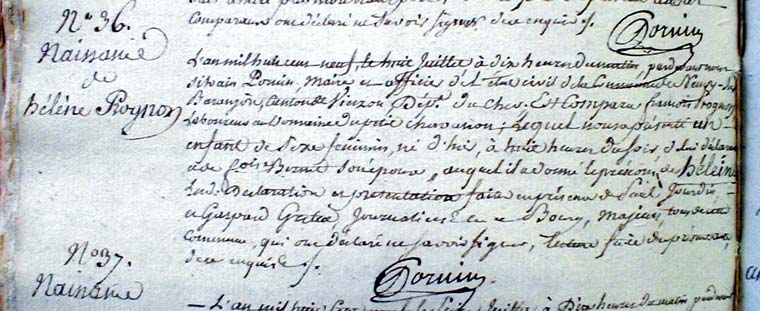 comparaux ont déclaré ne savoir signer de ce enquis ./.
Dorvin
N.º 36.
Naissance
de
hélène Rognon
L'an mil huit cent neuf, le huit Juillet à dix heures du matin, par devant nous
silvain Maire et officier de L'état civil de la Commune de Neuvy-sur
Barangeon, Canton de Vierzon Dépt. du Cher. Est Comparu françois Rognon
Laboureur au Domaine du petit ; Lequel nous a présenté un
enfant de Sexe féminin, né d'hier, à huit heures du soir de lui déclarant
et de son épouse, auquel il a donné le prénom de héleine
Lesd. Déclaration et présentation faite en présence de Jourdin
et Gaspard Journaliers en ce Bourg, majeurs, tous de cette
Commune, qui ont déclaré ne savoir signer, lecture faite du présent
de ce enquis ./.
Dorvin
N.º 37.
Naissance
L'an mil huit Cent neuf le Juillet à Dix heures du matin par devant